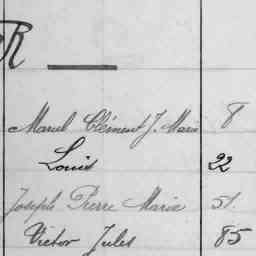 R
Marcel Clément J. Marie 8
Louis 22
Joseph Pierre Marie 51.
Victor Jules 85